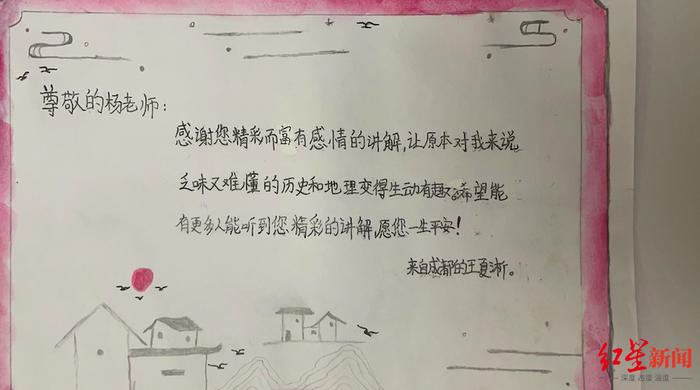 尊敬的杨老师:
感谢您精彩而富有感情的讲解,让原本对我来说
乏味又难懂的历史和地理变得生动有趣。希望能
有更多人能听到您精彩的讲解,愿您一生平安!
来自成都的王夏淅。
红星新闻
深度 态度 温度